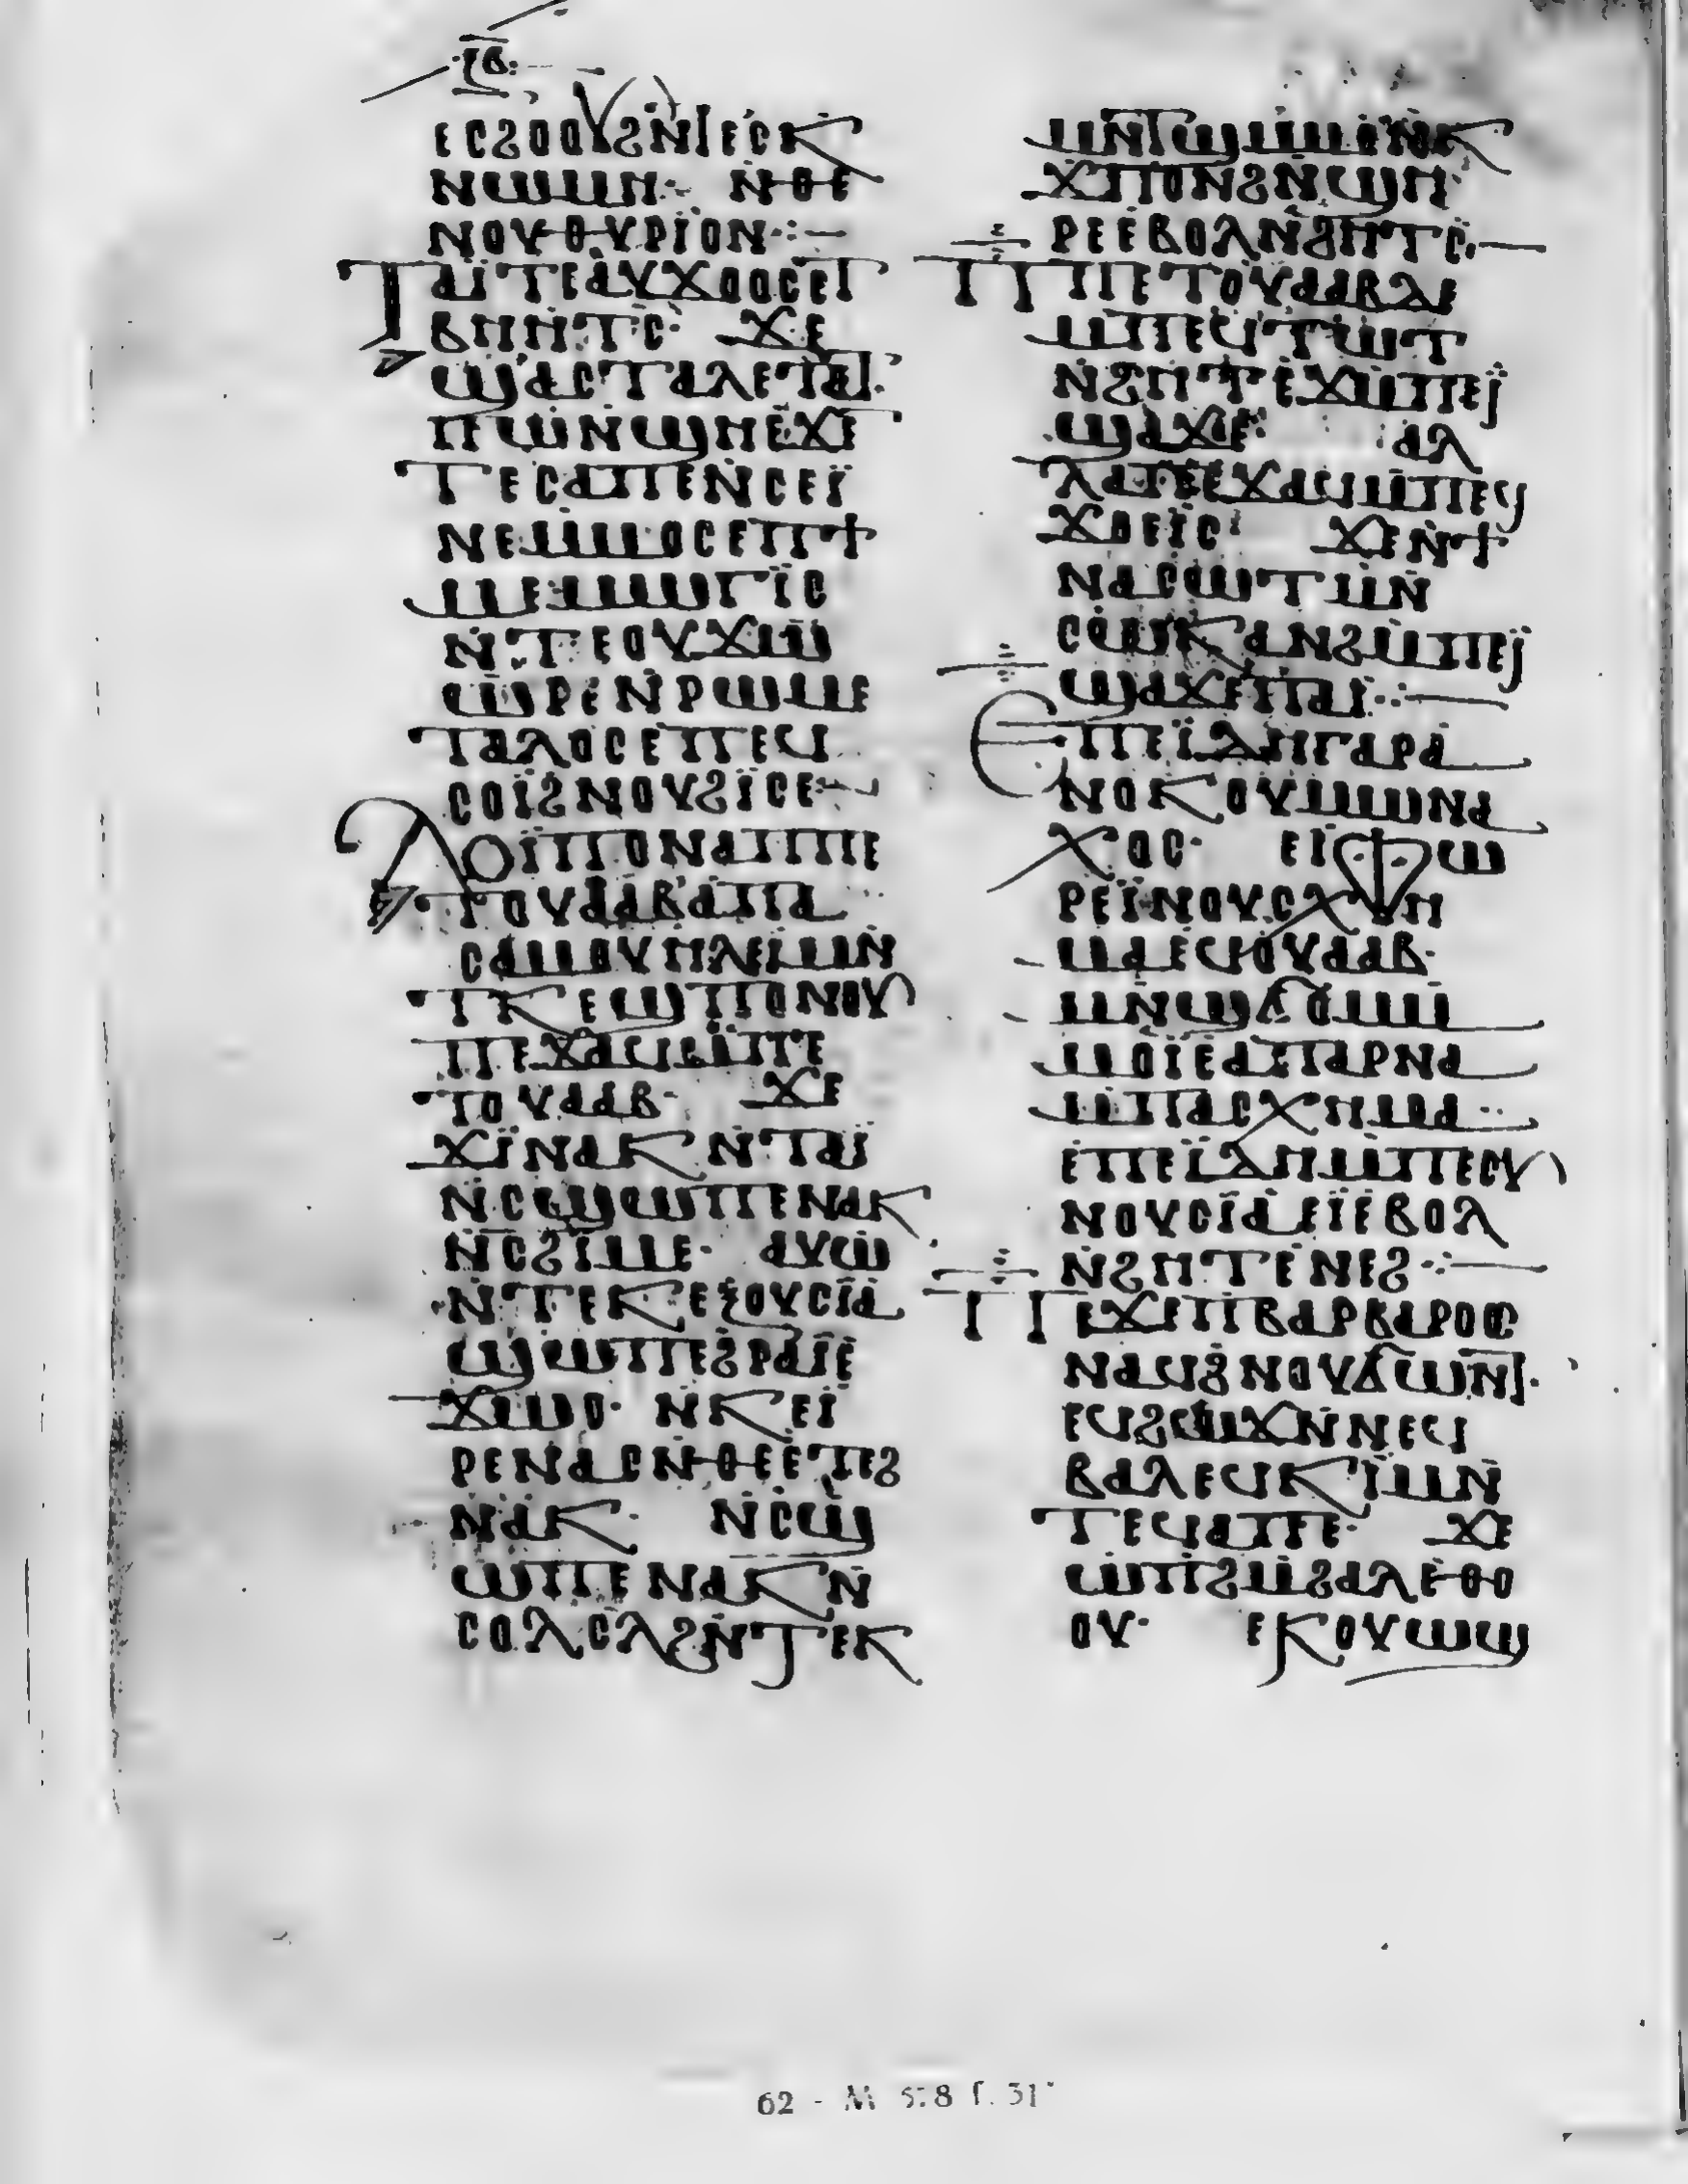 ⲝⲃ
ⲉⲥϩⲟⲟⲩϩⲛⲧⲉⲥⲕ
ⲛⲱⲙⲏ· ⲛⲑⲉ
ⲛⲟⲩⲑⲩⲣⲓⲟⲛ·:—
Ⲧⲁⲓⲧⲉⲁⲩϫⲟⲟⲥⲉⲧ
ⲃⲏⲏⲧⲥ· ϫⲉ
ϣⲁⲥⲧⲁⲗⲉⲧⲁⲓ·
ⲡⲱⲛϣⲏⲉϫⲓ
ⲧⲉⲥⲁⲡⲉⲛⲥⲉⲓ
ⲛⲉⲙⲙⲟⲥⲉⲡϯ
ⲙⲉⲙⲱⲅⲓⲥ
ⲛⲧⲉⲟⲩϫⲱ
ⲱⲣⲉⲛⲣⲱⲙⲉ
ⲧⲁⲗⲟⲥⲉⲡⲉϥ
ⲥⲟⲓϩⲛⲟⲩϩⲓⲥⲉ·—
Ⲗⲟⲓⲡⲟⲛⲁⲡⲡⲉ
ⲧⲟⲩⲁⲁⲃⲁⲡⲁ
ⲥⲁⲙⲟⲩⲏⲗⲉⲓⲙⲛ
ⲧⲕⲉϣⲡⲟⲛⲟⲩ
ⲡⲉϫⲁϥⲙⲡⲉ
ⲧⲟⲩⲁⲁⲃ· ϫⲉ
ϫⲓⲛⲁⲕⲛⲧⲁⲓ
ⲛⲥϣⲱⲡⲉⲛⲁⲕ
ⲛⲥϩⲓⲙⲉ· ⲁⲩⲱ
ⲛⲧⲉⲕⲉⲝⲟⲩⲥⲓⲁ
ϣⲱⲡⲉϩⲣⲁⲓⲉ
ϫⲱⲟ· ⲛⲕⲉⲓ
ⲣⲉⲛⲁⲥⲛⲑⲉⲉⲧⲉϩ
ⲛⲁⲕ· ⲛⲥϣ
ⲱⲡⲉⲛⲁⲕⲛ
ⲥⲟⲗⲥⲗϩⲛⲧⲉⲕ
ⲙⲛⲧϣⲙⲙⲟⲛⲅⲕ
ϫⲡⲟⲛϩⲛϣⲏ
ⲣⲉⲉⲃⲟⲗⲛϩⲏⲧⲥ·—
Ⲡⲡⲉⲧⲟⲩⲁⲁⲃⲇⲉ
ⲙⲡⲉϥⲧⲱⲧ
ⲛϩⲏⲧⲉϫⲙⲡⲉⲓ
ϣⲁϫⲉ· ⲁⲗ
ⲗⲁⲡⲉϫⲁϥⲙⲡⲉϥ
ϫⲟⲉⲓⲥ· ϫⲉⲛϯ
ⲛⲁⲥⲱⲧⲙⲛ
ⲥⲱⲕⲁⲛϩⲙⲡⲉⲓ
ϣⲁϫⲉⲡⲁⲓ·:—
Ⲉⲡⲉⲓⲇⲏⲅⲁⲣⲁ
ⲛⲟⲕⲟⲩⲙⲱⲛⲁ
ⲭⲟⲥ· ⲉⲓⲫⲱ
ⲣⲉⲓⲛⲟⲩⲥⲭⲏ
ⲙⲁⲉϥⲟⲩⲁⲁⲃ·
ⲙⲛϣϭⲟⲙ
ⲙⲟⲓⲉⲁⲡⲁⲣⲛⲁ
ⲙⲡⲁⲥⲭⲏⲙⲁ··
ⲉⲡⲉⲓⲇⲏⲙⲡⲉⲥⲩ
ⲛⲟⲩⲥⲓⲁⲉⲓⲉⲃⲟⲗ
ⲛϩⲏⲧⲉⲛⲉϩ·:—
Ⲡⲉϫⲉⲡⲃⲁⲣⲃⲁⲣⲟⲥ
ⲛⲁϥϩⲛⲟⲩϭⲱⲛⲧ·
ⲉϥϩⲱϫⲛⲛⲉϥ
ⲃⲁⲗⲉϥⲕⲓⲙⲛ
ⲧⲉϥⲁⲡⲉ· ϫⲉ
ⲱⲡϩⲙϩⲁⲗⲉⲑⲟ
ⲟⲩ· ⲉⲕⲟⲩⲱϣ
62 - M 578 f. 31ᵛ